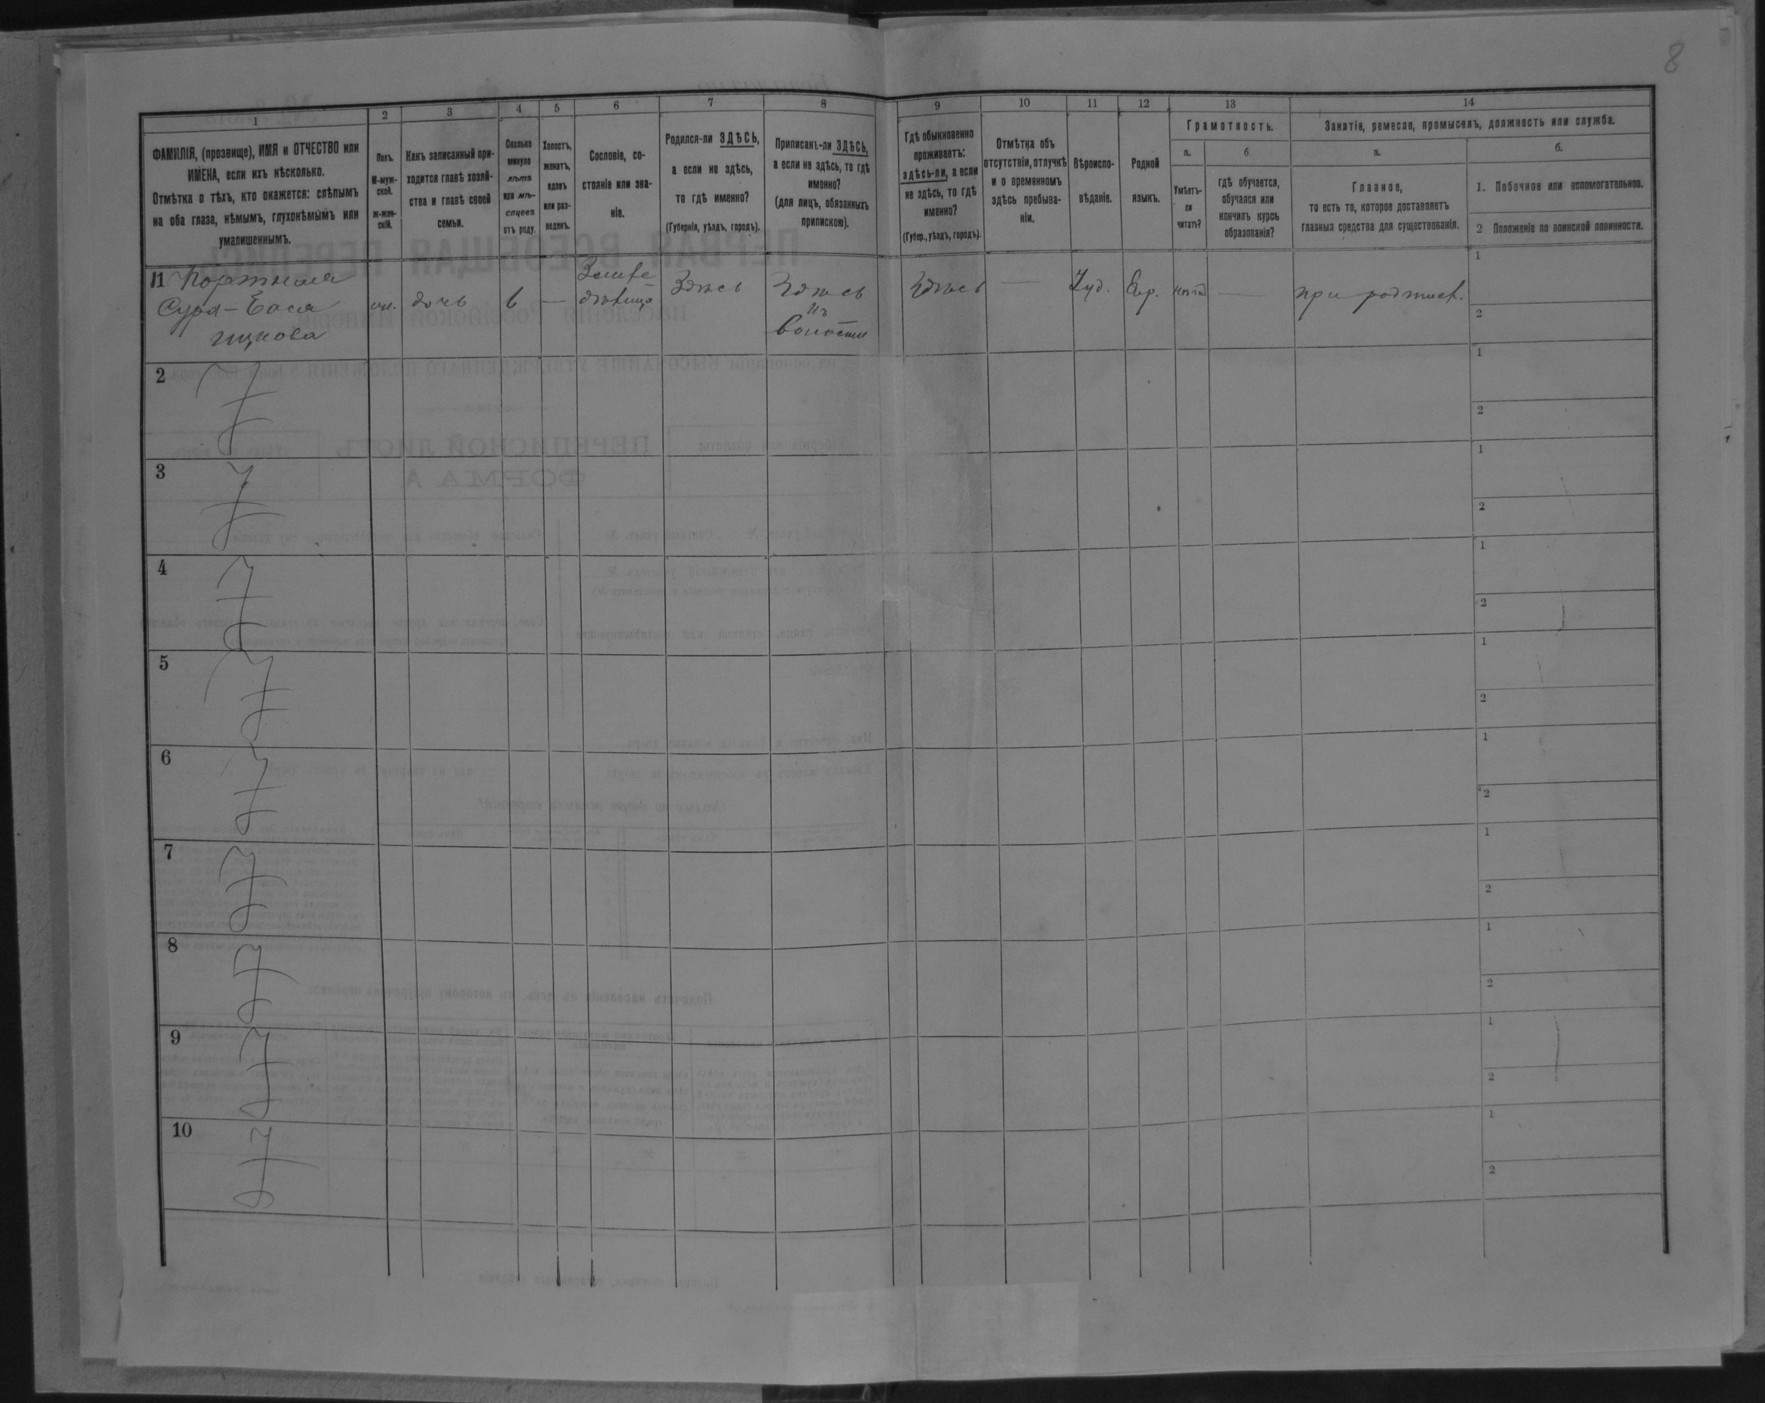 8
1
2
3
4
5
6
7
8
9
10
11
12
13
14
ФАМИЛІЯ, (прозвище), ИМЯ и ОТЧЕСТВО или
ИМЕНА, если ихъ нѣсколько.
Отмѣтка о тѣхъ, кто окажется: слѣпымъ
на оба глаза, нѣмымъ, глухонѣмымъ или
умалишеннымъ.
Полъ.
М-муж-
ской.
Ж-жен-
скій.
Какъ записанный при-
ходится главѣ хозяй-
ства и главѣ своей
семьи.
Сколько
минуло
лѣтъ
или мѣ-
сяцевъ
отъ роду.
Холостъ,
женатъ,
вдовъ
или раз-
веденъ.
Сословіе, со-
стояніе или зва-
ніе.
Родился-ли ЗДѢСЬ,
а если не здѣсь,
то гдѣ именно?
(Губернія, уѣздъ, городъ).
Приписанъ-ли ЗДѢСЬ,
а если не здѣсь, то гдѣ
именно?
(для лицъ, обязанныхъ
припискою).
Гдѣ обыкновенно
проживаетъ:
здѣсь-ли, а если
не здѣсь, то гдѣ
именно?
(Губер., уѣздъ, городъ).
Отмѣтка объ
отсутствіи, отлучкѣ
и о временномъ
здѣсь пребыва-
ніи.
Вѣроиспо-
вѣданіе.
Родной
языкъ.
Грамотность.
а.
Умѣетъ-
ли
читать?
б
гдѣ обучается,
обучался или
кончилъ курсъ
образованія?
Занятіе, ремесло, промыселъ, должность или служба.
а.
Главное,
то есть то, которое доставляетъ
главныя средства для существованія.
б.
1. Побочное или вспомогательное.
2 Положеніе по воинской повинности.
11
Сура-Бася
дочь
6
—
Здѣсь
Здѣсь
Здѣсь
—
Іуд.
Евр.
—
при родител.
1
2
2
1
2
3
1
2
4
1
2
5
1
2
6
1
2
7
1
2
8
1
2
9
1
2
10
1
2